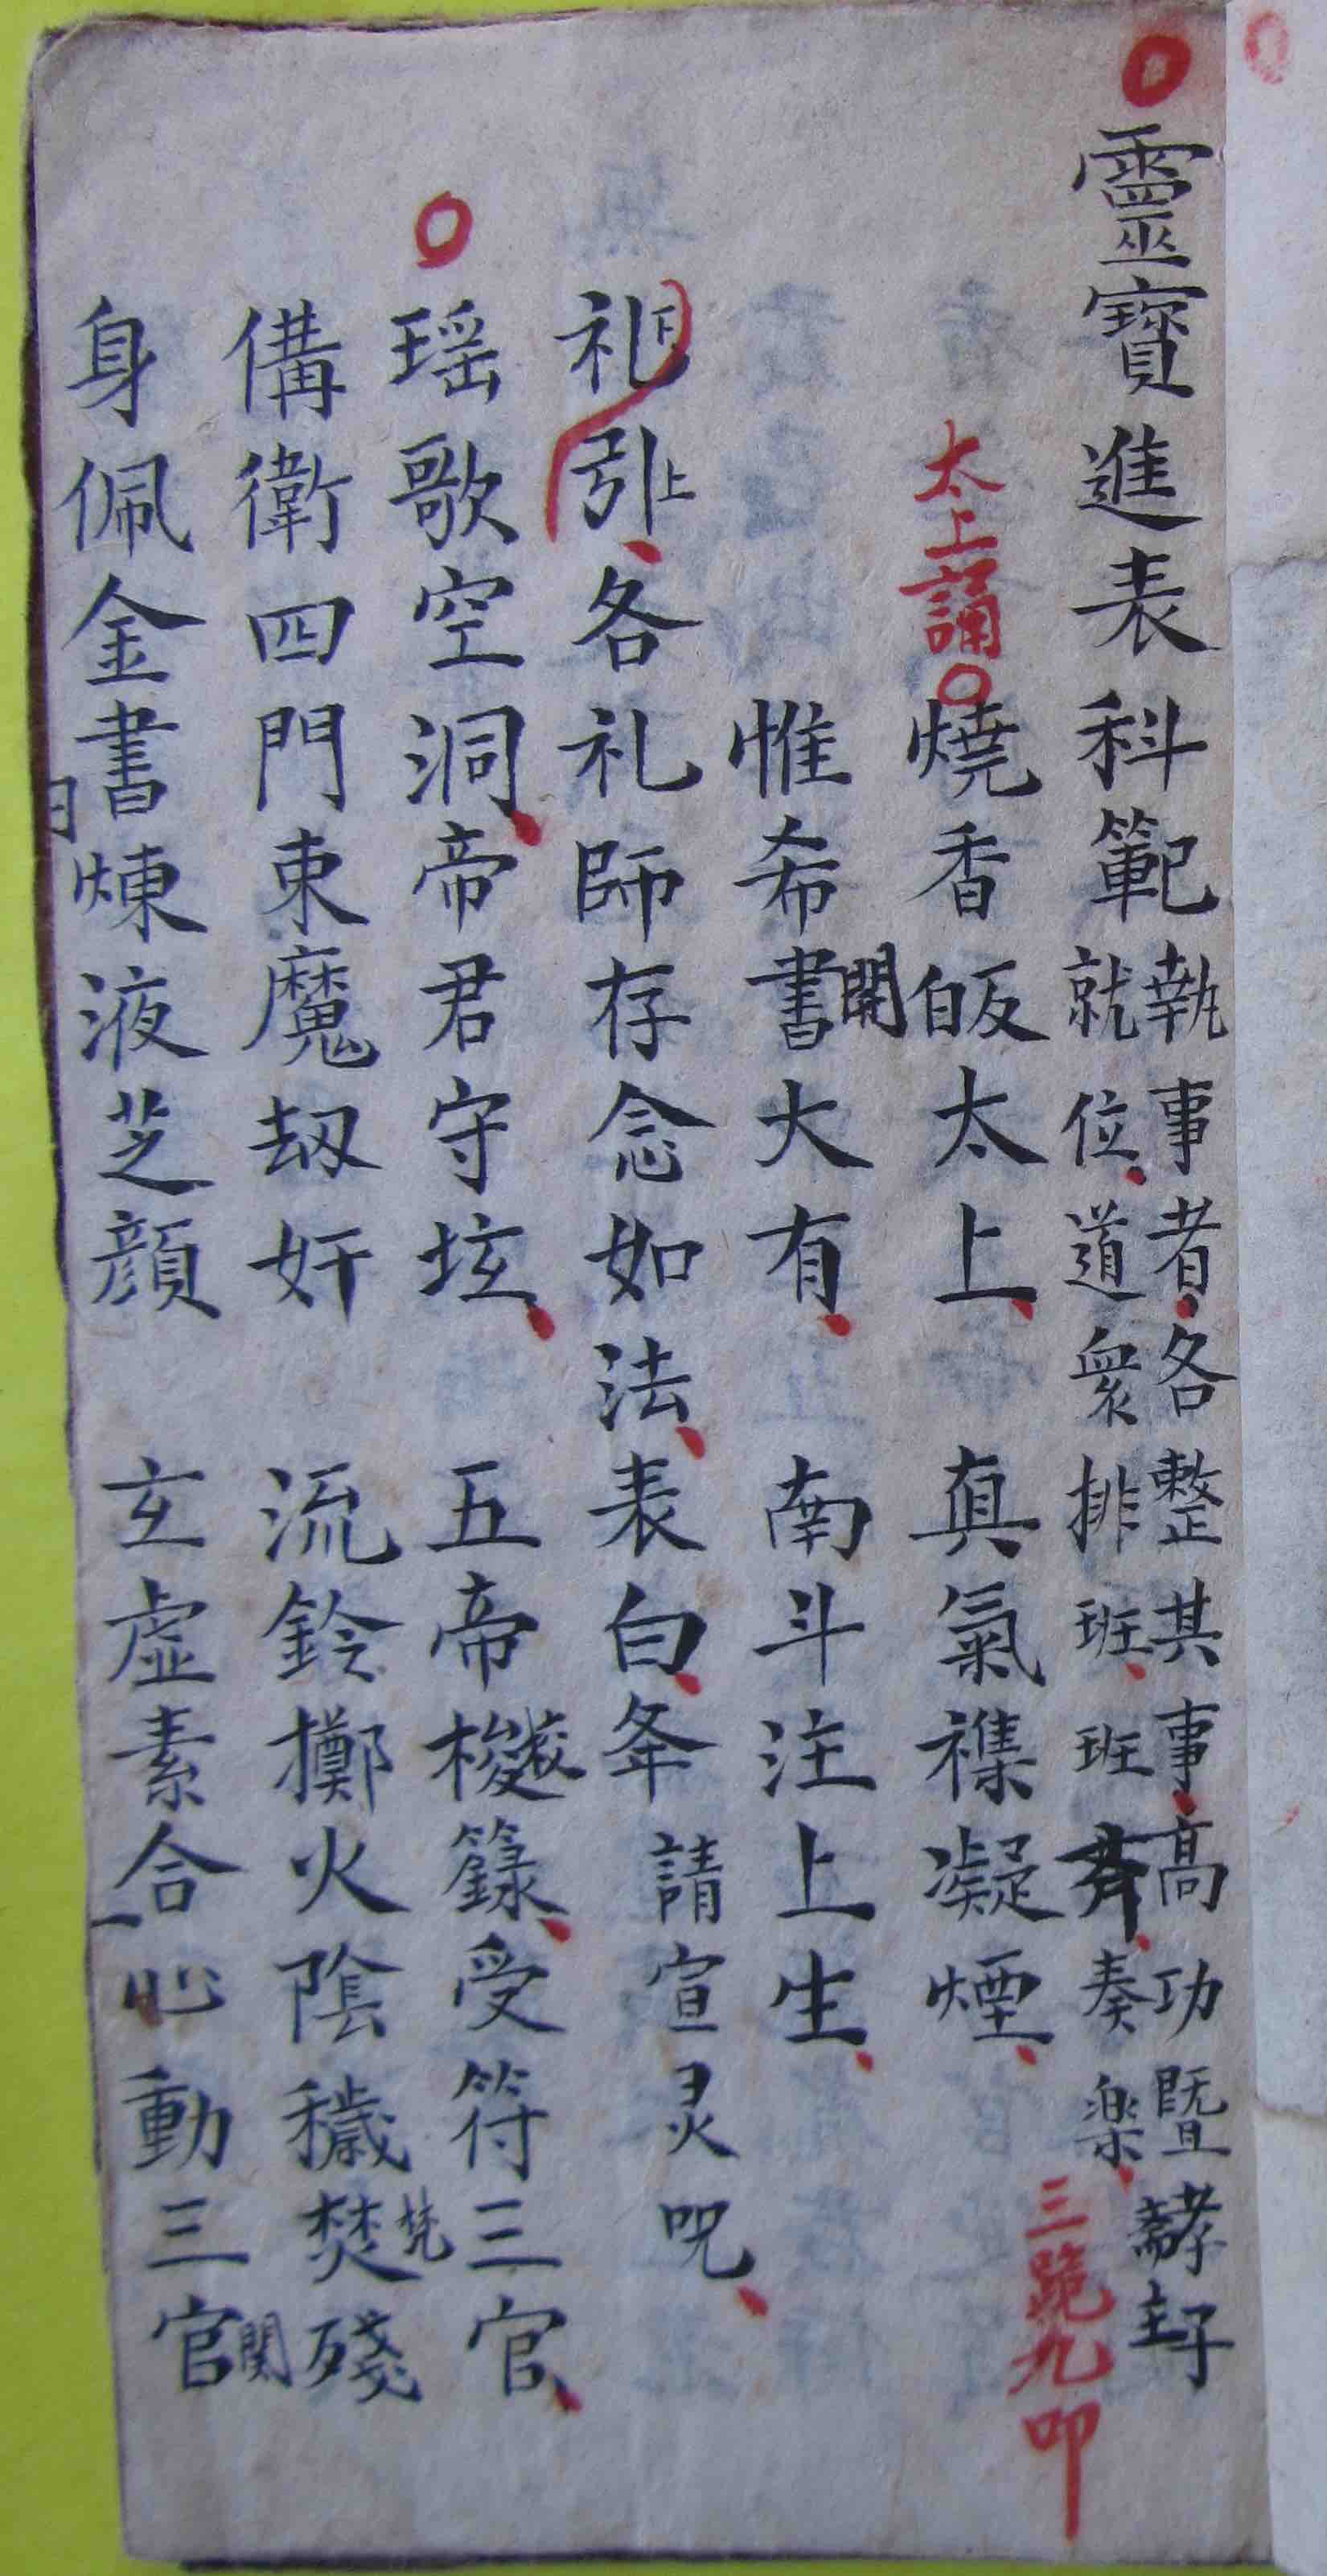 靈寶進表科範
執事者各整其事高功暨齋孝主子
就位道衆排班班齊奏楽
三跪九叩
太上誦
燒香皈太上真氣襍凝煙
惟希書開大有南斗注上生
礼下引上各礼師存念如法表白夅請宣灵咒
瑶歌空洞帝君守玹五帝梭校籙受符三官
備衛四門束魔刧奸流鈴擲火陰穢焚梵殘
身佩金書煉液芝顔玄虚素合心動三官開